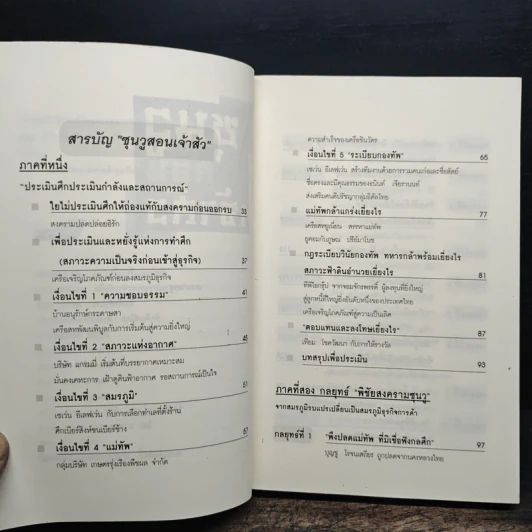 สารบัญ "ซุนวูสอนเจ้าสัว"
ภาคที่หนึ่ง
"ประเมินศึกประเมินกำลังและสถานการณ์"
ใยไม่ประเมินศึกให้ถ่องแท้กับสงครามก่อนออกรบ 33
สงครามปลดปล่อยอิรัก
เพื่อประเมินและหยั่งรู้แห่งการทำศึก
(สภาวะความเป็นจริงก่อนเข้าสู่ธุรกิจ) 37
เครือเจริญโภคภัณฑ์ก่อนลงสมรภูมิธุรกิจ
เงื่อนไขที่ 1 "ความชอบธรรม" 41
บ้านอนุรักษ์กระดาษสา
เครือสหพัฒนพิบูลกับการเริ่มต้นสู่ความยิ่งใหญ่
เงื่อนไขที่ 2 "สภาวะแห่งอากาศ" 45
บริษัท แกรมมี่ เริ่มต้นที่บรรยากาศเหมาะสม
มั่นคงเคหะการ เฝ้าดูดินฟ้าอากาศ รอสถานการณ์เป็นใจ
เงื่อนไขที่ 3 "สมรภูมิ" 51
เซเว่น อีเลฟเว่น กับการเลือกทำเลที่ตั้งร้าน
ศึกเบียร์สิงห์ชนเบียร์ช้าง
เงื่อนไขที่ 4 "แม่ทัพ" 57
กลุ่มบริษัท เกษตรรุ่งเรืองพืชผล จำกัด
ความสำเร็จของเครือชินวัตร
เงื่อนไขที่ 5 "ระเบียบกองทัพ" 65
เซเว่น อีเลฟเว่น สร้างทีมงานด้วยการรวมคนเก่งและซื่อสัตย์
ซื่อตรงและมีคุณธรรมของธนินท์ เจียรวนนท์
ส่งเสริมคนดีปรัชญากลุ่มอิตัลไทย
แม่ทัพกล้าแกร่งเยี่ยงไร 77
เครือสหยูเนี่ยน สรรหาแม่ทัพ
ยุคคมกับภูษณ ปรีย์มาโนช
กฎระเบียบวินัยกองทัพ ทหารกล้าพร้อมเยี่ยงไร
สภาวะฟ้าดินอำนวยเยี่ยงไร 81
ทีพีไอกรุ๊ป จากจอมจักรพรรดิ์ ผู้ลงทุนที่ยิ่งใหญ่
สู่ลูกหนี้ที่ใหญ่ยิ่งอันดับหนึ่งของประเทศไทย
เครือเจริญโภคภัณฑ์สู่ความเป็นเลิศ
"ตอบแทนและลงโทษเยี่ยงไร" 87
เทียม โชควัฒนา กับการให้รางวัล
บทสรุปเพื่อประเมิน 93
ภาคที่สอง กลยุทธ์ "พิชัยสงครามซุนวู"
จากสมรภูมิรบแปรเปลี่ยนเป็นสมรภูมิธุรกิจการค้า
กลยุทธ์ที่ 1 "พึงปลดแม่ทัพ ที่มิเชื่อฟังกลศึก" 97
บุญชู โรจนเสถียร ถูกปลดจากนครหลวงไทย